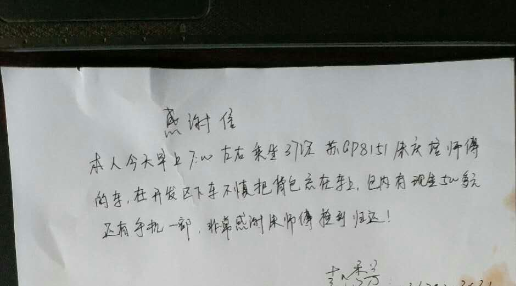 感谢信
本人今天早上7:00左右乘坐37路 苏GP8151 朱庆 师傅
的车,在开发区下车不慎把背包丢在车上,包内有现金500多元
还有手机一部,非常感谢朱师傅捡到归还!